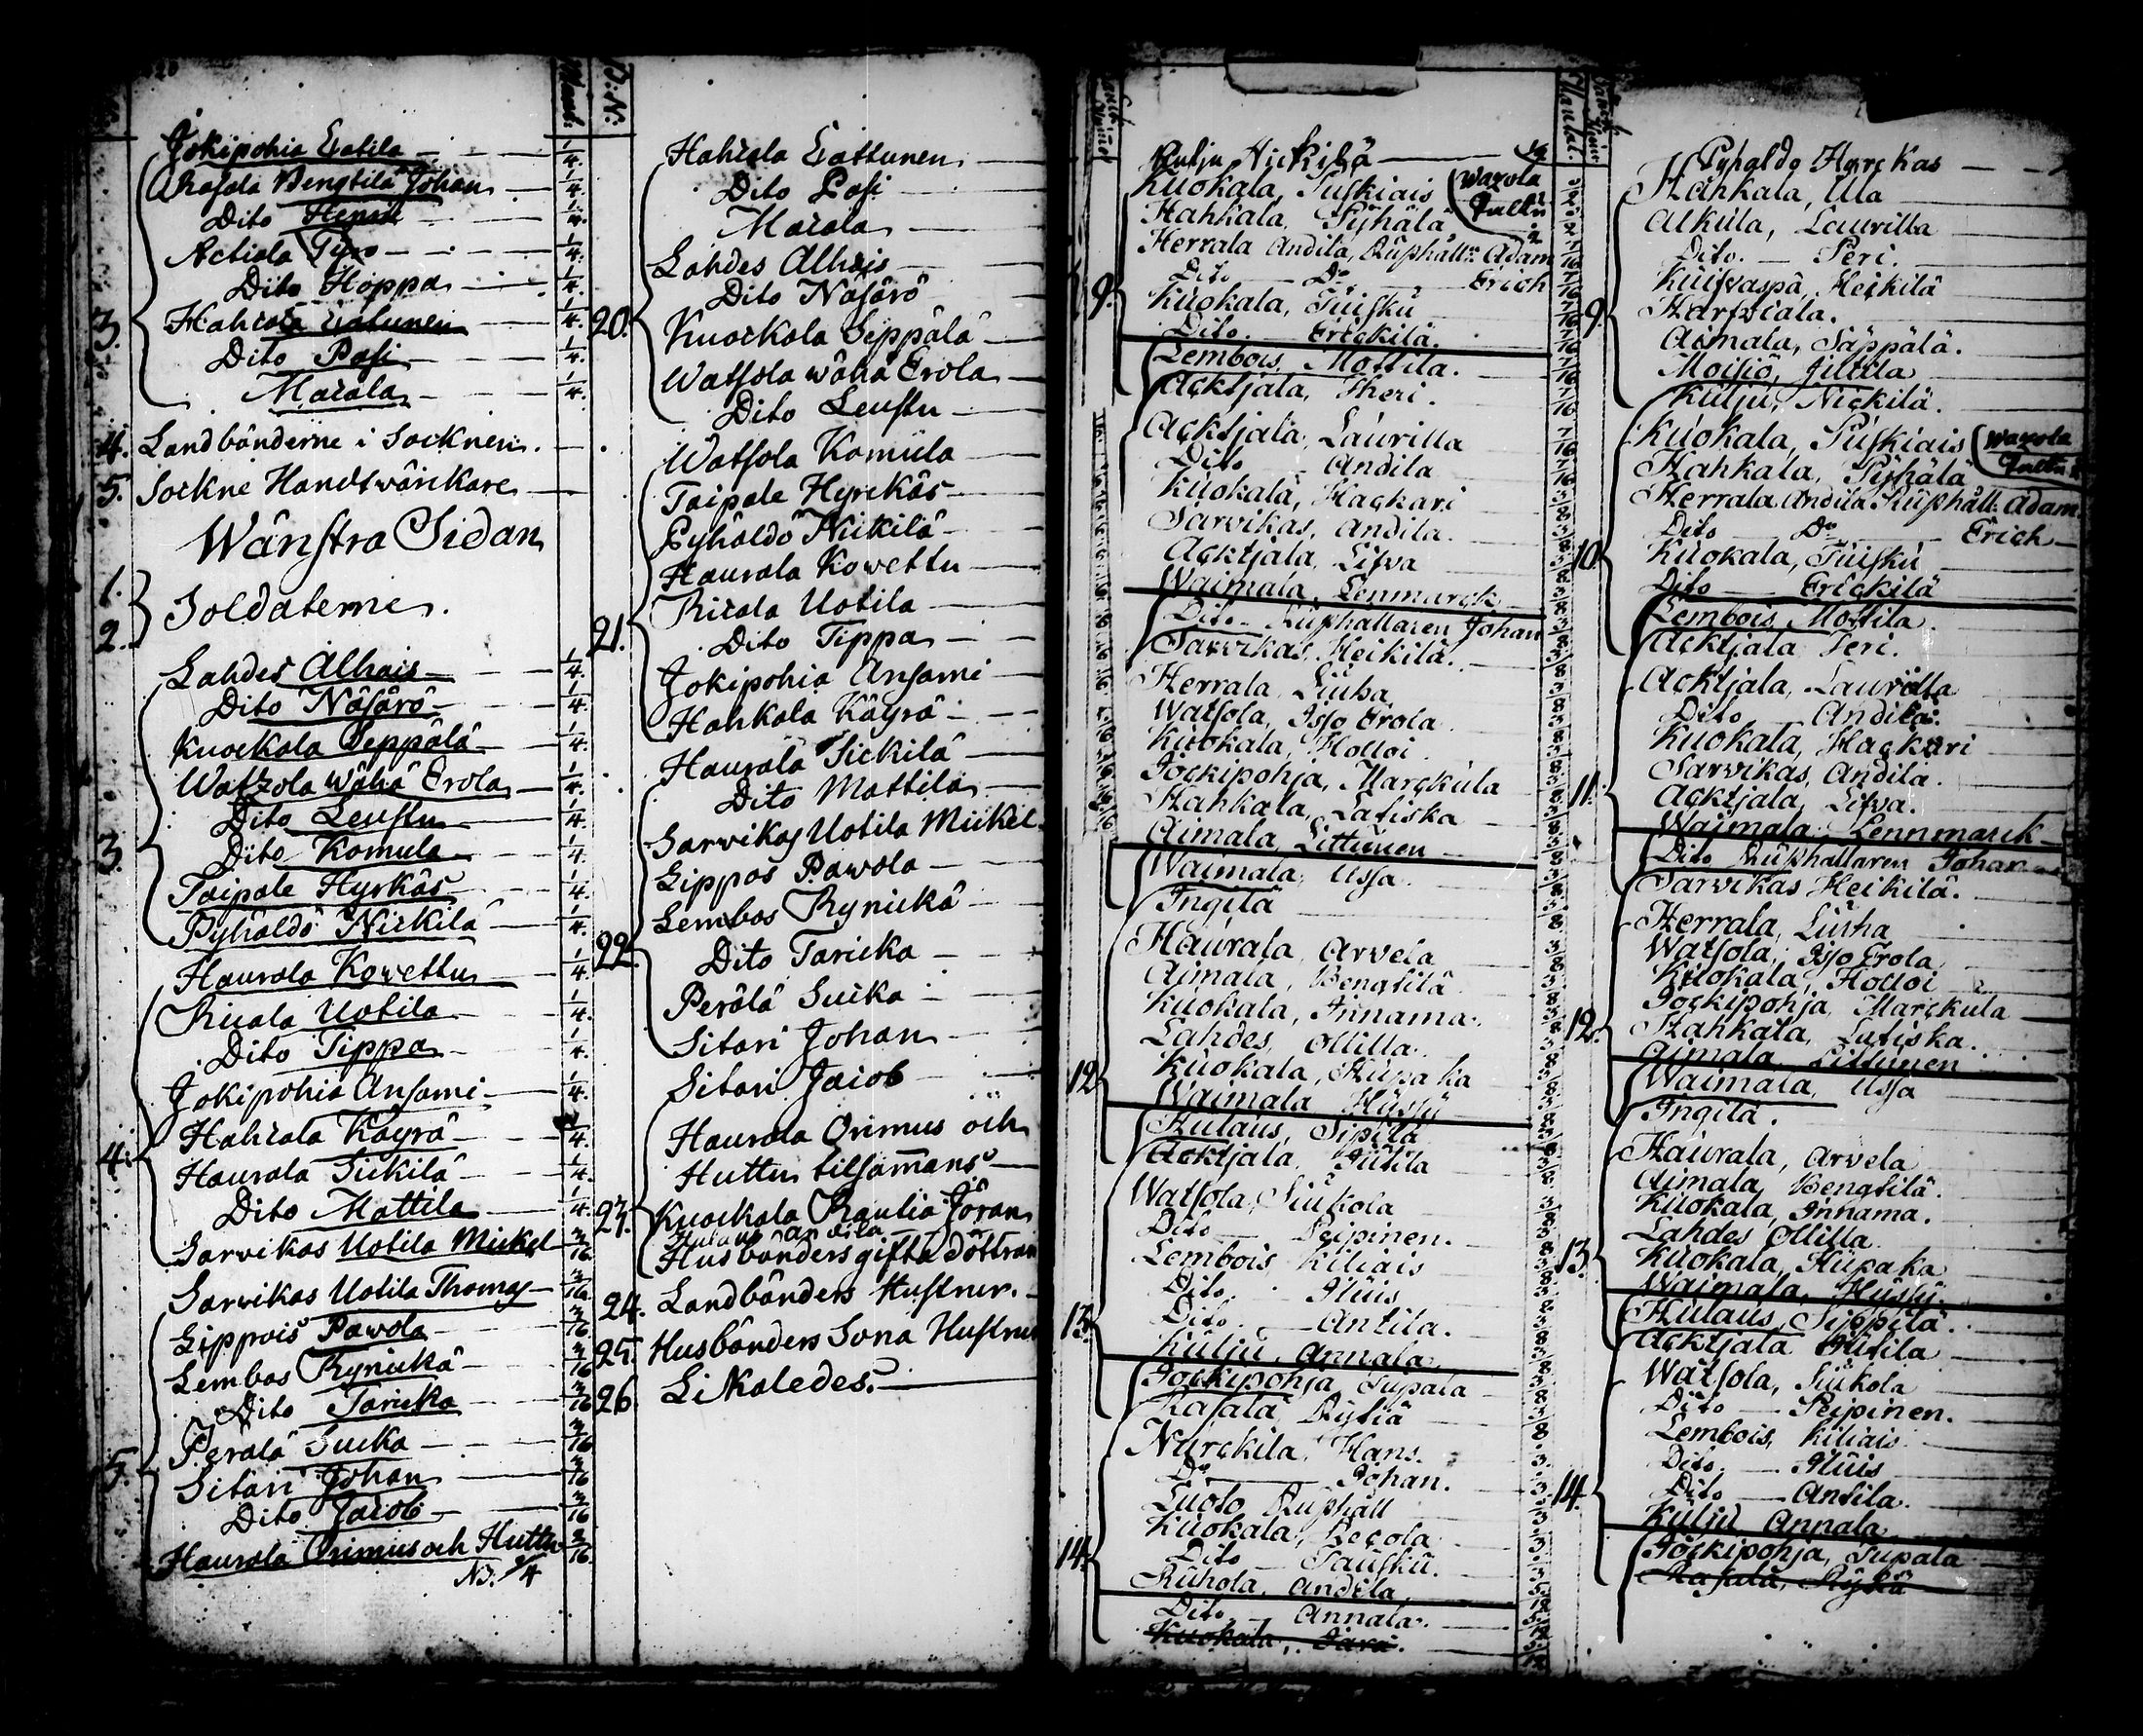 Jokipohia Eatila 1/4.
Rasala Bengtilä Johan 1/4.
Dito Henrik 1/4.
Actiala Tyro 1/4.
Dito Hoppa 1/4.
3. Hahcala Eatunen 1/4.
Dito Pasi 1/4.
Macala 1/4.
4. Landbönderne i Socknen.
5. Sockne Handtwärckare
Wänstra Sidan
1.
2. Soldaterne.
Lahdes Alhais 1/4.
Dito Näsärö 1/4.
Knockala Seppälä 1/4.
Watzola wähä Erola 1/4.
Dito Leustu 1/4.
3. Dito Komula 1/4.
Taipale Hyrkäs 1/4.
Pyhäldö Nickilä 1/4.
Haurala Kowettu 1/4.
Ricala Uotila 1/4.
Dito Tippa 1/4.
Jokipohia Ansami 1/4.
Hahcala Käyrä 1/4.
4. Haurala Sickilä 1/4.
Dito Mattila 1/4.
Sarvikas Uotila Mickel 3/16
Sarvikas Uotila Thomas 3/16
Lippois Pawola 3/16
Lembos Rynickä 3/16
Dito Taricka 3/16
Perälä Sucka 3/16
5. Sitari Johan 3/16
Dito Jacob 3/16
Haurala Orimus och Huttu 3/16.
B: N:
Hahcala Eattunen
Dito Pasi
Macala
Lahdes Alhais
Dito Näsärö
20. Kuockala Seppälä
Watsola wähä Erola
Dito Leustu
Watsola Komula
Taipale Hyrckäs
Pyhäldö Nickilä
Haurala Kowettu
Ricala Uotila
21. Dito Tippa
Jokipohia Ansami
Hahkala Käyrä
Haurala Sickilä
Dito Mattila
Sarvikas Uotila Mickel
Lippos Pawola
Lembos Rynickä
22 Dito Taricka
Perälä Sucka
Sitari Johan
Sitari Jacob
Haurala Orimus och
Huttu tilsamans
23. Kuockala Raulia Jöran
Hulaus Andila
Husbönders gifta döttrar
24. Landbönders Hustrur.
25. Husbönders Söna Hustrur
26. Likaledes.
Kulju Nickilä
Kuokala, Puskiais Wazola
Hahkala, Pyhälä
Herrala Andila, Rusthåll: Adam 7/16
Dito Do Erich 7/16
9. Kuokala, Tuisku 7/16
Dito. Erickilä. 7/16
Lembois, Mottila. 7/16
Acktjala, Iheri. 7/16
Acktjala, Laurilla 7/16
Dito Andila 7/16
Kuokala, Hackari 3/8
Sarvikas, Andila. 3/8
Acktjala, Litva 3/8
Waimala, Lenmarck 3/8
Dito Rusthallaren Johan 3/8
Sarvikas, Heikilä. 3/8
Herrala, Liuha 3/8
Watsola, Isso Erola 3/8
Kuokala, Holloi 3/8
Jockipohja, Marckula 3/8
Hahkala, Latiska 3/8
Aimala, Littunen 3/8
Waimala, Ussa. 3/8
Ingilä 3/8
Haurala, Arvela 3/8
Aimala, Bengtilä 3/8
Kuokala, Innama. 3/8
Lahdes, Ollilla. 3/8
12 Kuokala, Hupaka 3/8
Waimala Hussu 3/8
Hulaus, Sipilä 3/8
Acktjala, Iutila 3/8
Watsola, Siukola 3/8
Dito Peipinen. 3/8
Lembois Kiliais 3/8
Dito. Iluis 3/8
13. Dito. Antila. 3/8
Kulju, Annala 3/8
Jockipohja Supala 3/8
Rasala 3/8
Nurckila, Hans. 3
Do Johan. 3
Luoto Rusthåll 3
Kuokala, Recola 3
14. Dito Tausku. 3
Ruhola, Andila
Dito Annala.
Kuokala, Jara.
Pyhäldö Hyrckäs
Hahkala, Ula
Alkula, Laurilla
Dito. Peri.
Kuivaspä, Heikilä
9. Hartsiala.
Aimala, Säppälä.
Moisio, Jutilla
Kulju, Nickilä.
Kuokala, Puskiais Wazola
Hahkala, Pyhälä
Herrala Andila Rusthåll: Adam
Dito Do Erich
10 Kuokala, Tuisku
Dito Erickilä
Lembois, Mottila.
Acktjala Ieri.
Acktjala, Laurilla
Dito Andila.
Kuokala, Hackari
Sarvikas, Andila.
11. Acktjala, Litva.
Waimala Lennmarck
Dito Rusthallaren Johan
Sarvikas Heikilä.
Herrala, Liuha
Watsola, Isso Erola
Kuokala, Holloi
Jockipohja, Marckula
12. Hahkala, Latiska.
Aimala Littunen
Waimala, Ussa
Ingilä.
Haurala, Arvela
Aimala, Bengtilä.
Kuokala, Innama.
Lahdes Ollilla
13. Kuokala, Hupaka
Waimala, Hussu
Hulaus, Sippilä.
Acktjala Iutila
Watsola, Siukola
Dito Peipinen.
Lembois, Kiliais.
Dito. Iluis
14. Dito Antila.
Kulju Annala
Jockipohja, Supala
Rasala,